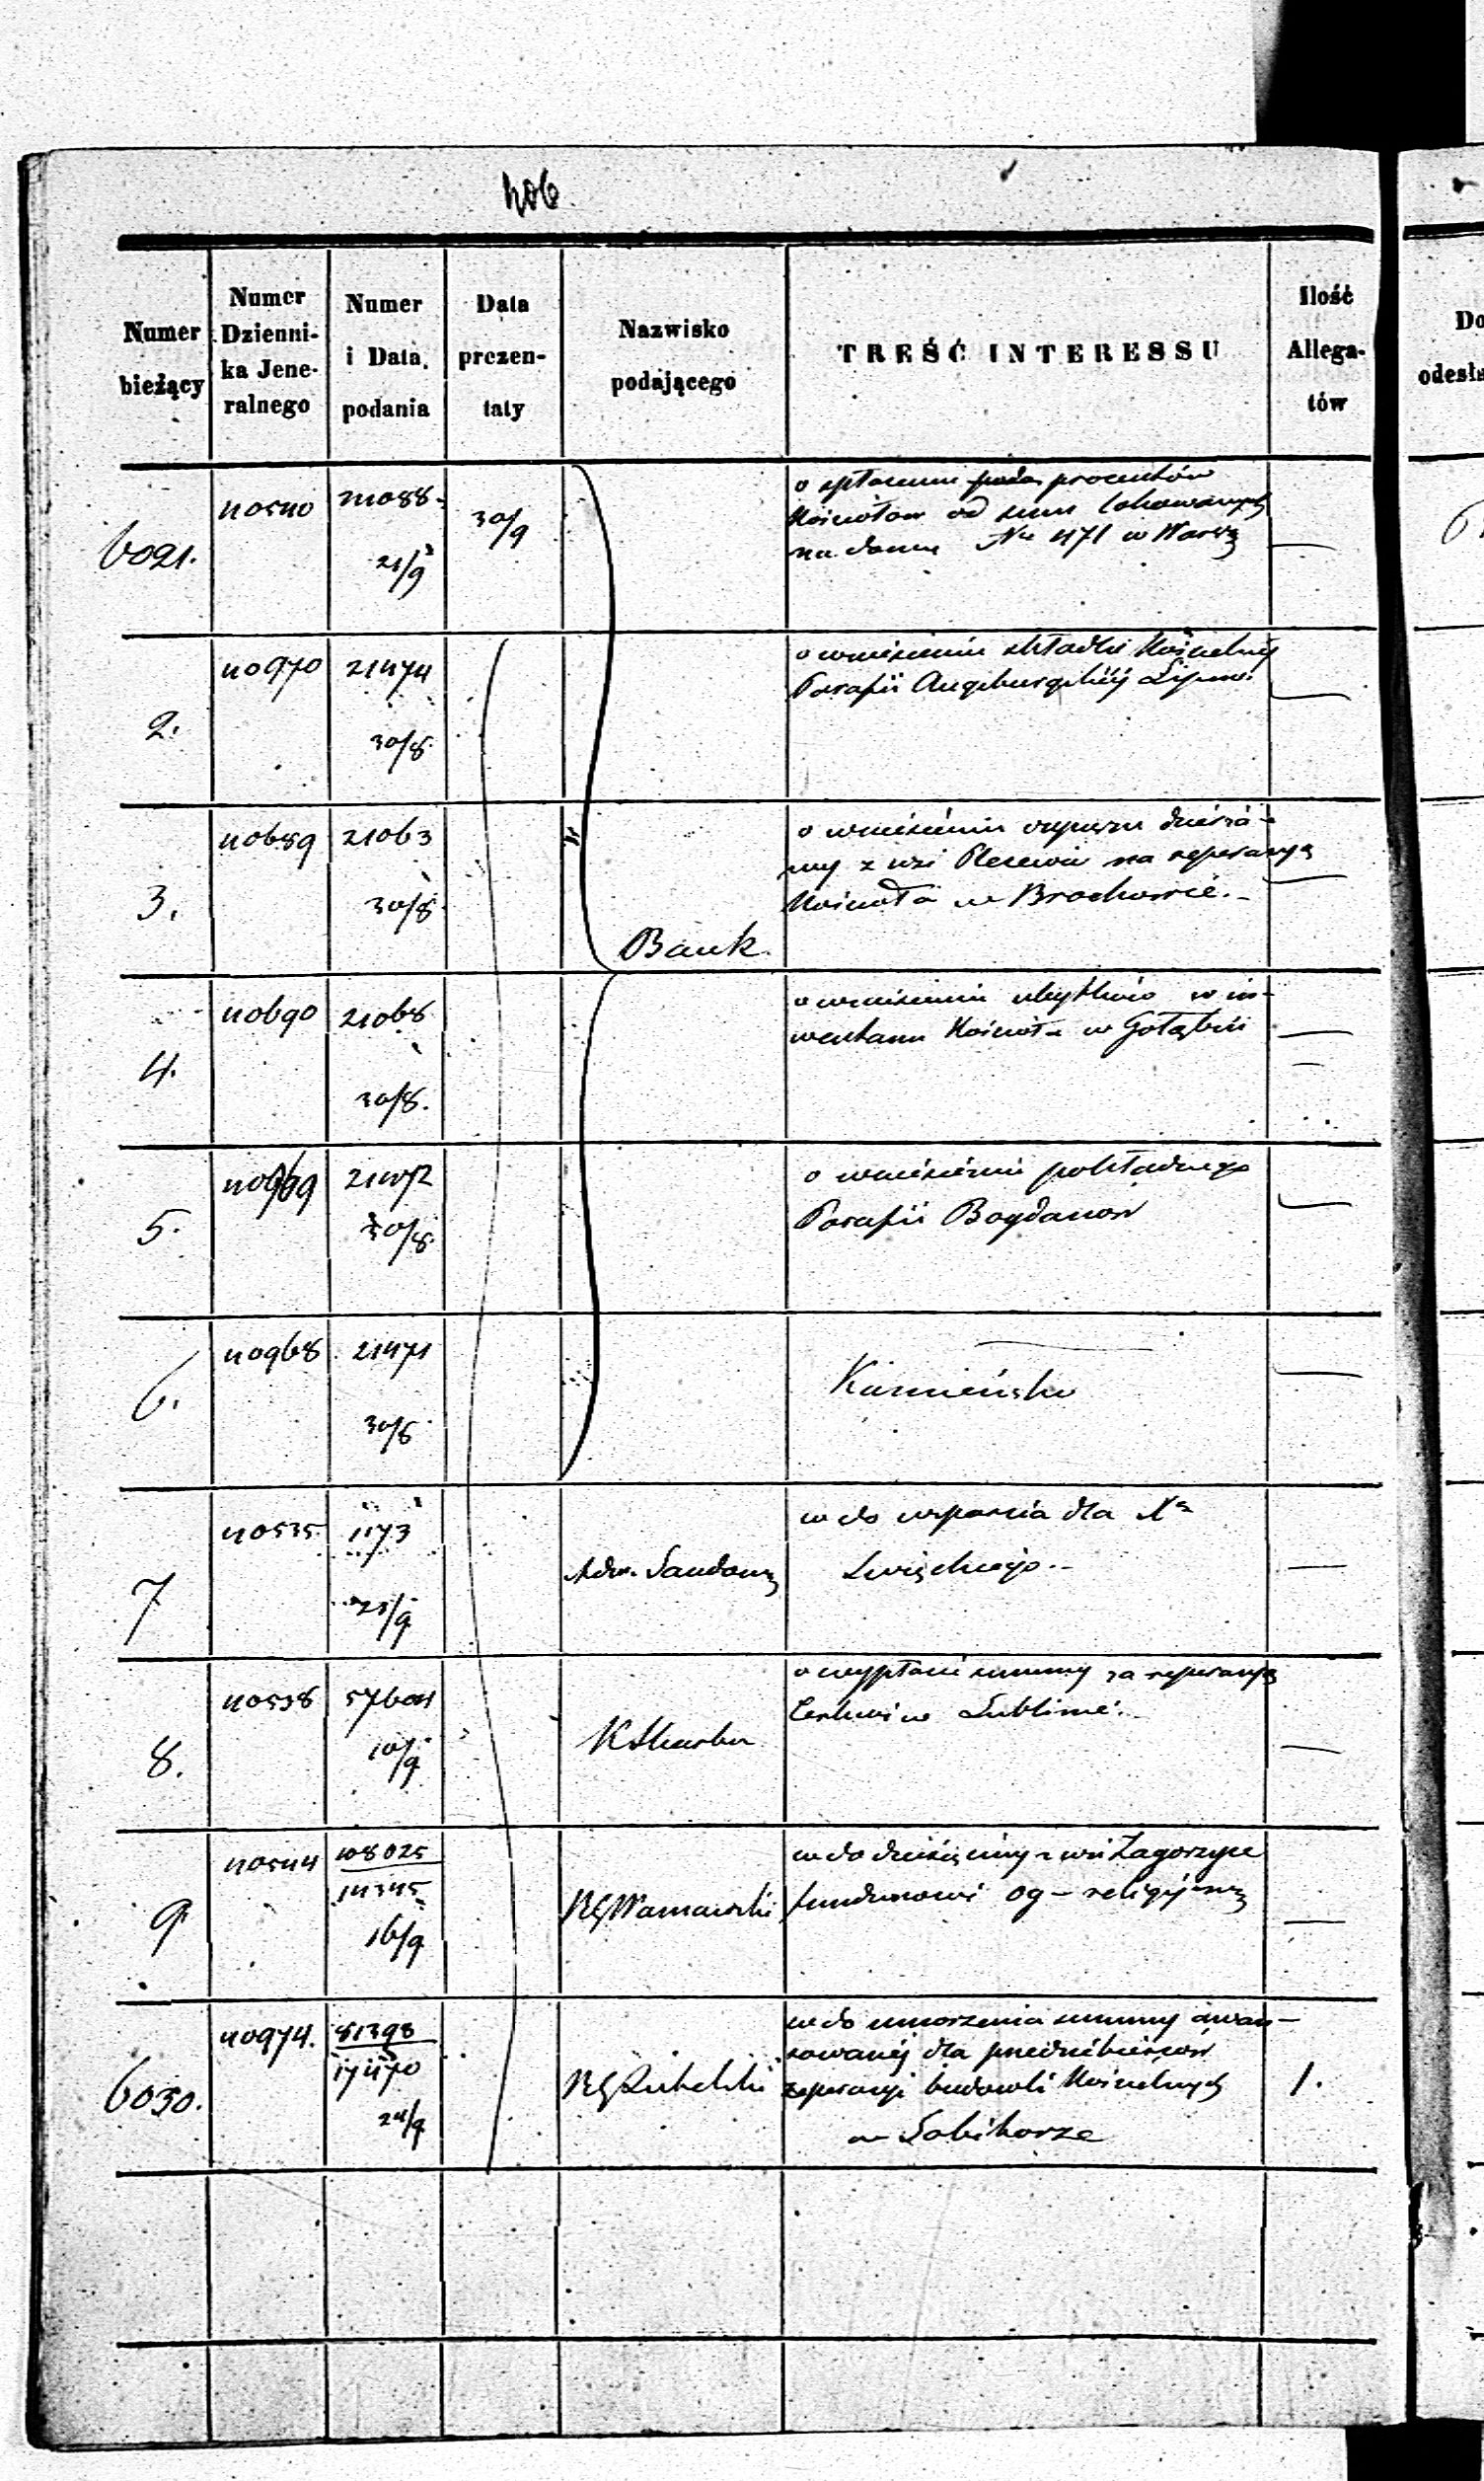 406
Numer bieżący
Numer Dzienni-ka Jene-ralnego
Numer i Data podania
Data prezen-taty
Nazwisko podającego
TREŚĆ INTERESSU
Ilość Allega-tów
Do
odesła
6021.
40540
21088
21/9
30/9
o spłaceniu procentów
Kościołowi od summ lokowanych
na domu Nr 471 w Warsz
2.
40970
21474
30/8
o wniesieniu składki Kościelnej
Parafii Augsburgskiéj Lipno
3.
40689
21063
30/8
Bank
o wniesieniu
z wsi na reperacyą
Kościoła w Brochowie.
4.
40690
21068
30/8.
o wniesieniu w in-
wentarzu Kościoła w Gołąbiu
5.
21072
30/8.
o wniesieniu pokładnego
Parafii Bogdanow
6.
40968
21471
30/8
Kamieńsko
7
40535
1173
21/9
Adm. Sandom
w do wsparcia dla Xa
8.
40538
57604
10/9
K Skarbu
o wypłacie summy za reperacyą
Cerkwi w Lublinie.
9
40544
108025
14345
16/9
RG Warszawski
w do dziesięciny z wsi Zagorzyce
funduszowi og- religijnem
6030.
40974.
81398
17470
24/9
RG Lubelski
w do umorzenia summy awan-
sowanéj dla
reperacyi budowli Kościelnych
w Sobiborze
1.